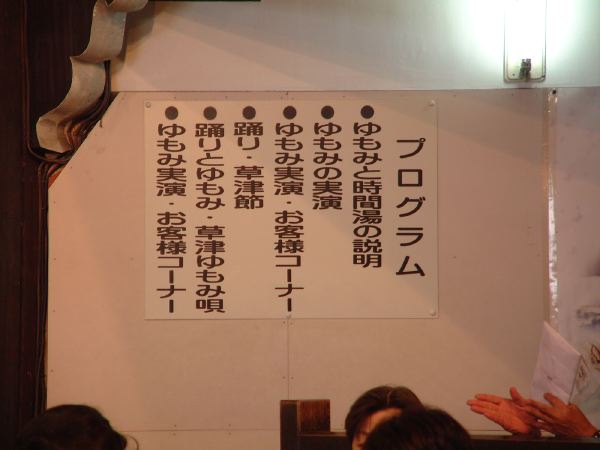 プログラム
●ゆもみと時間湯の説明
●ゆもみの実演
●ゆもみ実演・お客様コーナー
●踊り・草津節
●踊りとゆもみ・草津ゆもみ唄
●ゆもみ実演・お客様コーナー